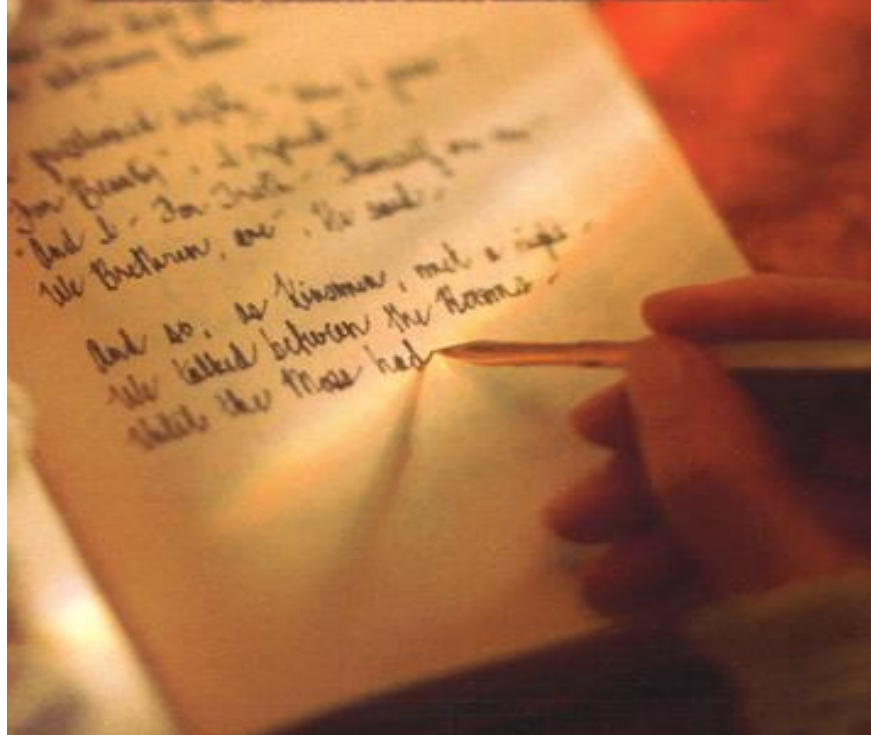 questioned softly
For Beauty", I replied -
"And I - For Truth - Themself are one
We Brethren, are", He said -
And so, as Kinsmen, met a night -
We talked between the Rooms -
Until the Moss had